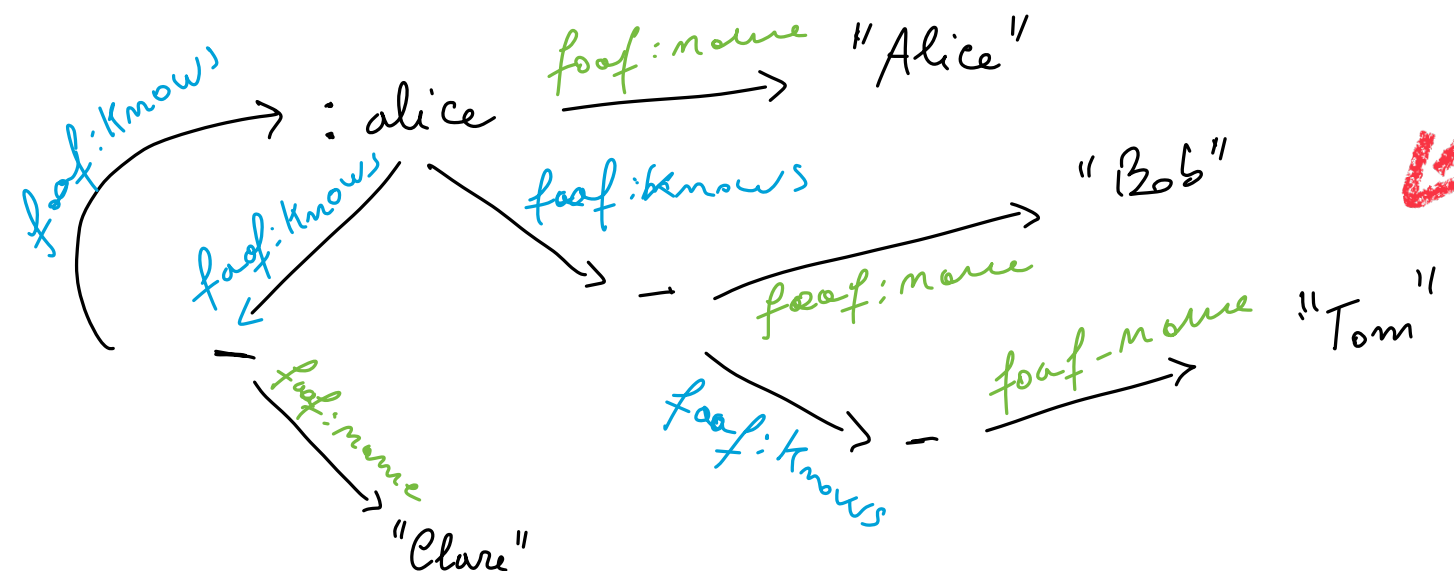 foaf:name "Alice"
foaf:knows :alice
foaf:knows foaf:knows "Bob"
foaf:name
foaf-name "Tom"
foaf:name foaf:knows
"Clare"